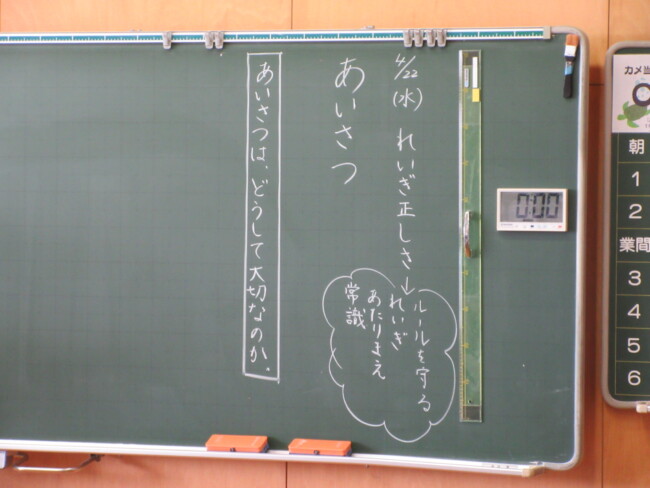 4/22
(水) れいぎ正しさ→
ルールを守る
れいぎ
あたりまえ
常識
あいさつ
あいさつは、どうして大切なのか。
0:00
カメ当
朝
1
2
業間
3
4
5
6